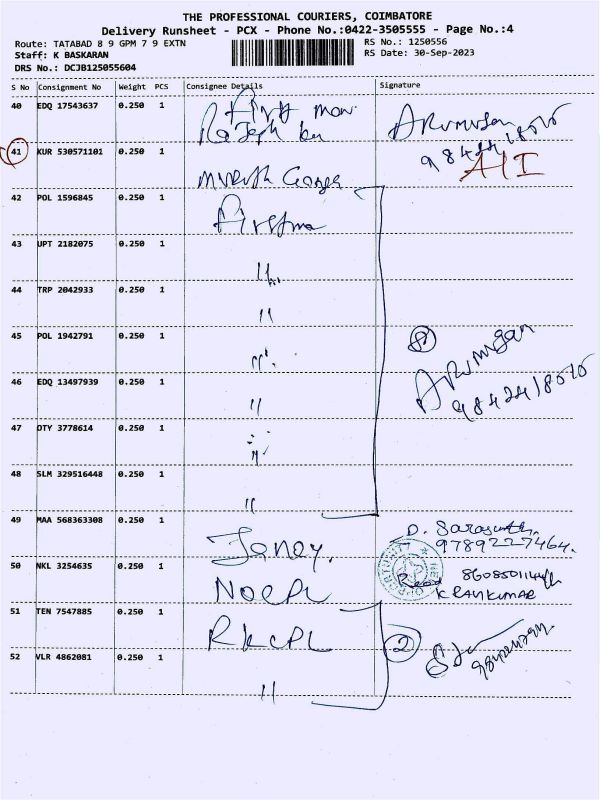 THE PROFESSIONAL COURIERS, COIMBATORE
Delivery Runsheet - PCX - Phone No.:0422-3505555 - Page No.:4
Route: TATABAD 8 9 GPM 7 9 EXTN
RS No.: 1250556
Staff: K BASKARAN
RS Date: 30-Sep-2023
DRS No.: DCJB125055604
S No Consignment No Weight PCS Consignee Details Signature
40 EDQ 17543637 0.250 1
Arumugan
41 KUR 530571101 0.250 1
42 POL 1596845 0.250 1
43 UPT 2182075 0.250 1 "
44 TRP 2042933 0.250 1 "
45 POL 1942791 0.250 1 "
8
Arumugan
9842418070
46 EDQ 13497939 0.250 1 "
47 OTY 3778614 0.250 1 "
48 SLM 329516448 0.250 1 "
49 MAA 568363308 0.250 1
D.
9789227464.
50 NKL 3254635 0.250 1
K RAVIKUMAR
51 TEN 7547885 0.250 1 RKCPL
2
52 VLR 4862081 0.250 1 "